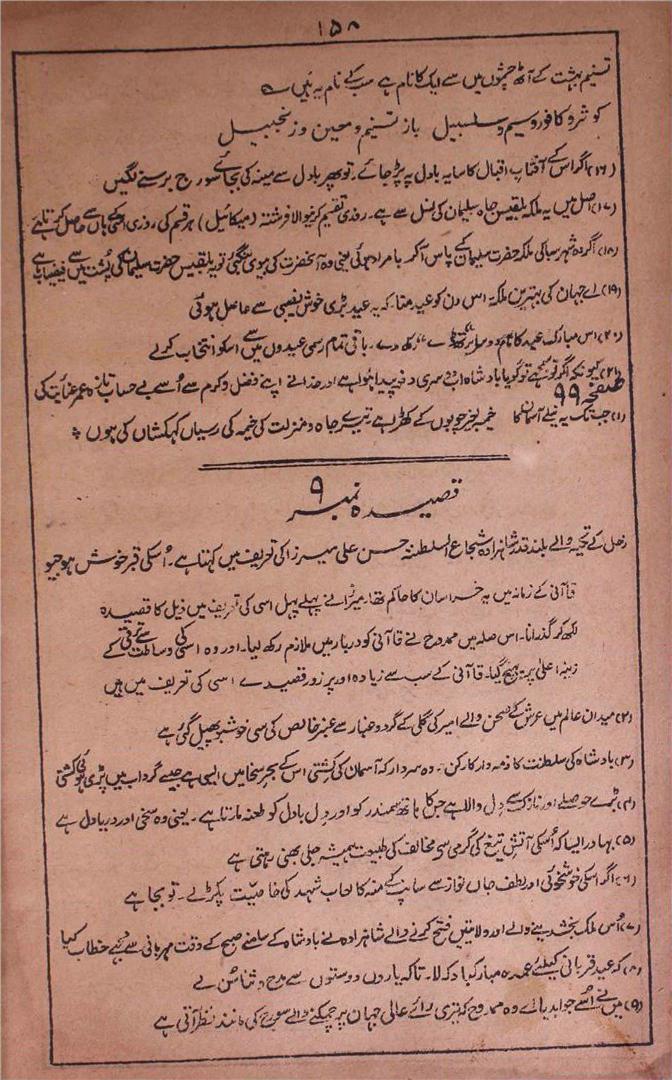 ۱۵۸
تسنیم بہشت کے آٹھ چشموں میں سے ایک کا نام ہے سب کے نام یہ ہیں ؎
کوثر و کافور و سیم و سلسبیل باز تسنیم و معین و زنجبیل
(۱۶) اگر اس کے آفتاب اقبال کا سایہ بادل پہ پڑ جائے۔ تو پھر بادل سے مینہ کی بجائے سورج برسنے لگیں
(۱۷) اصل میں یہ ملکہ بلقیس جاہ سلیمان کی نسل سے ہے۔ روزی تقسیم کرنیوالا فرشتہ (میکائیل) ہر قسم کی روزی اسکے ہاں سے حاصل کرتا ہے
(۱۸) اگر وہ شہر سبا کی ملکہ حضرت سلیمان کے پاس آکر بامراد ہوئی یعنی وہ آنحضرت کی بیوی بنگئی تو یہ بلقیس حضرت سلیمان کی پشت میں سے فیضیاب ہے
(۱۹) اے جہان کی بہترین ملکہ اس دن کو عید منا۔ کہ یہ عید بڑی خوش نصیبی سے حاصل ہوئی
(۲۰) اس مبارک عید کا نام رکھ دے۔ باقی تمام رسمی عیدوں میں سے اسکو انتخاب کر لے
(۲۱) کیونکہ اگر تو سمجھے تو گویا بادشاہ اب دوسری دفعہ پیدا ہوا ہے اور خدا نے اپنے فضل و کرم سے اُسے بے حساب تازہ عمر عنایت کی
صفحہ ۹۹
(۱) جب تک یہ نیلے آسمان کا خیمہ بغیر چوبوں کے کھڑا ہے تیرے جاہ و منزلت کی خیمہ کی رسیاں کہکشاں کی ہوں
قصیدہ نمبر ۹
زحل کے تجیہ والے بلند قدر شاہزادہ شجاع السلطنۃ حسن علی میرزا کی تعریف میں کہتا ہے۔ اُسکی قبر خوش ہوجیو
قاآنی کے زمانہ میں یہ خراسان کا حاکم تھا۔ میرزا نے پہلے پہل اسی کی تعریف میں ذیل کا قصیدہ
لکھ کر گذرانا۔ اس صلہ میں ممدوح نے قاآنی کو دربار میں ملازم رکھ لیا۔ اور وہ اسی کی وساطت سے ترقی کے
زینہ اعلیٰ پر پہنچ گیا۔ قاآنی کے سب سے زیادہ اور پر زور قصیدے اسی کی تعریف میں ہیں
(۲) میدان عالم میں عرش کے صحن والے امیر کی گلی کے گرد و غبار سے عنبر خالص کی سی خوشبو پھیل گئی ہے
(۳) بادشاہ کی سلطنت کا ذمہ وار کارکن۔ وہ سردار کہ آسمان کی کشتی اس کے بحر سخا میں ایسی ہے جیسے گرداب میں پڑی ہوئی کشتی
(۴) بڑے حوصلے اور نازک سے دل والا ہے جس کا ہاتھ سمندر کو اور دل بادل کو طعنہ مارتا ہے۔ یعنی وہ سخی اور دریا دل ہے
(۵) بہادر ایسا کہ اُسکی آتش تیغ کی گرمی سے مخالف کی طبیعت ہمیشہ جلی بھنی رہتی ہے
(۶) اگر اسکی خوشخوئی اور لطف جاں نواز سے سانپ کے منہ کا لعاب شہد کی خاصیت پکڑ لے۔ تو بجا ہے
(۷) اُس ملک بخشدینے والے اور ولایتیں فتح کرنے والے شاہزادہ نے بادشاہ کے سامنے صبح کے وقت مہربانی سے مجھے خطاب کیا
(۸) کہ عید قربانی کیلئے عمدہ مبارکباد کہہ لا۔ تاکہ یاروں دوستوں سے مدح و ثنا سُن لے
(۹) میں نے اُسے جواب دیا۔ اے وہ ممدوح کہ تیری رائے عالی جہان پر چمکنے والے سورج کی مانند نظر آتی ہے